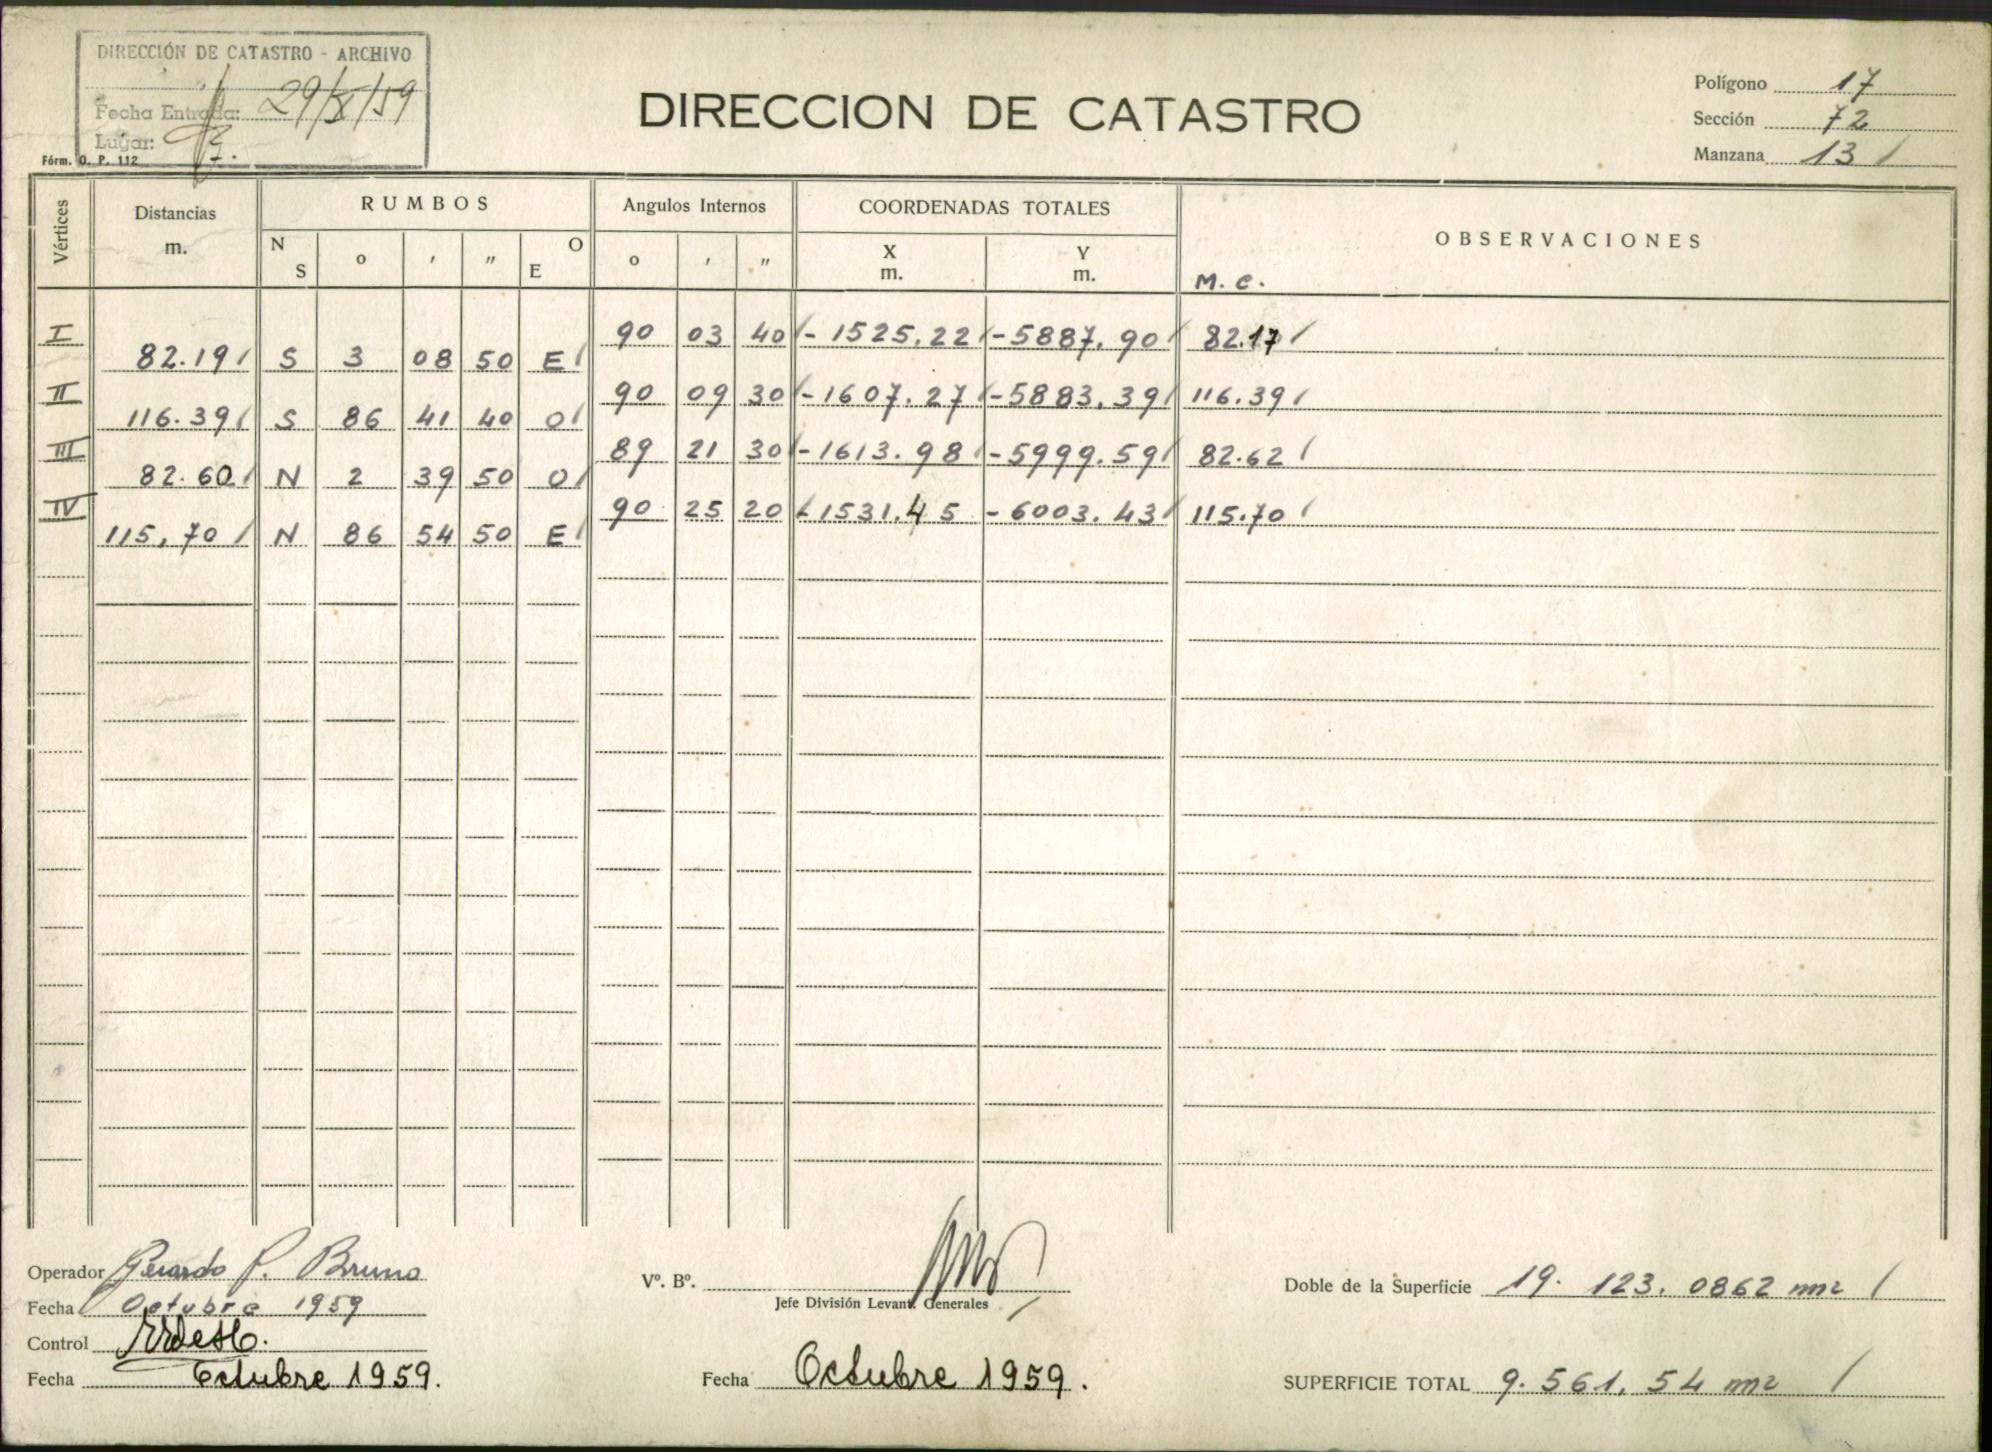 DIRECCIÓN DE CATASTRO - ARCHIVO
Fecha Entrada: 29/X/59
Lugar:
Fórm. O. P. 112
DIRECCION DE CATASTRO
Polígono 17
Sección 72
Manzana 13 /
Vértices Distancias m. RUMBOS Angulos Internos COORDENADAS TOTALES OBSERVACIONES
N S o ' " O E o ' " X m. Y m. M. C.
I 90 03 40 / - 1525.22 / - 5887.90 / 82.17 /
82.19 / S 3 08 50 E /
II 90 09 30 / - 1607.27 / - 5883.39 / 116.39 /
116.39 / S 86 41 40 O /
III 89 21 30 / - 1613.98 / - 5999.59 / 82.62 /
82.60 / N 2 39 50 O /
IV 90 25 20 - 1531.45 - 6003.43 / 115.70 /
115,70 / N 86 54 50 E /
Operador Gerardo P. Bruno
Fecha Octubre 1959
Control
Fecha Octubre 1959.
Vº. Bº.
Jefe División Levant. Generales
Fecha Octubre 1959.
Doble de la Superficie 19. 123. 0862 m2 /
SUPERFICIE TOTAL 9. 561. 54 m2 /